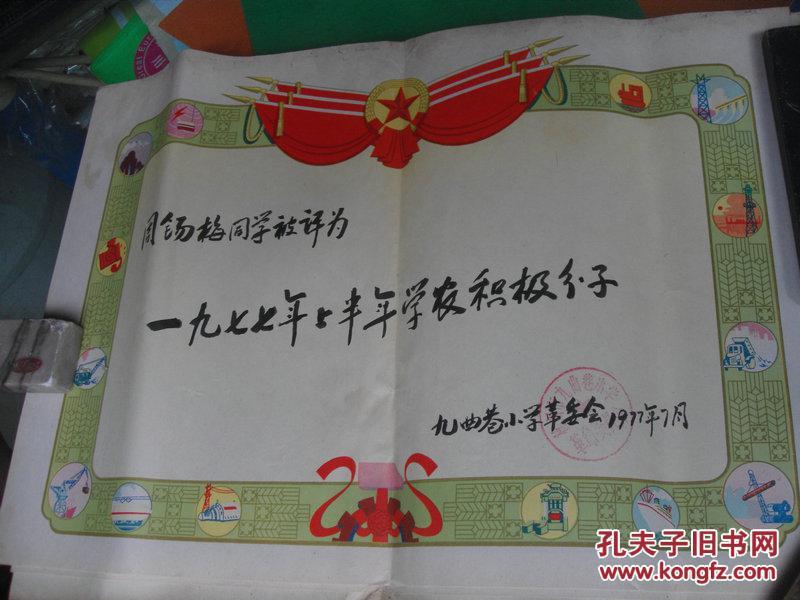 周锡梅同学被评为
一九七七年上半年学农积极分子
九曲巷小学革委会1977年7月
九曲巷小学
孔夫子旧书网
www.kongfz.com